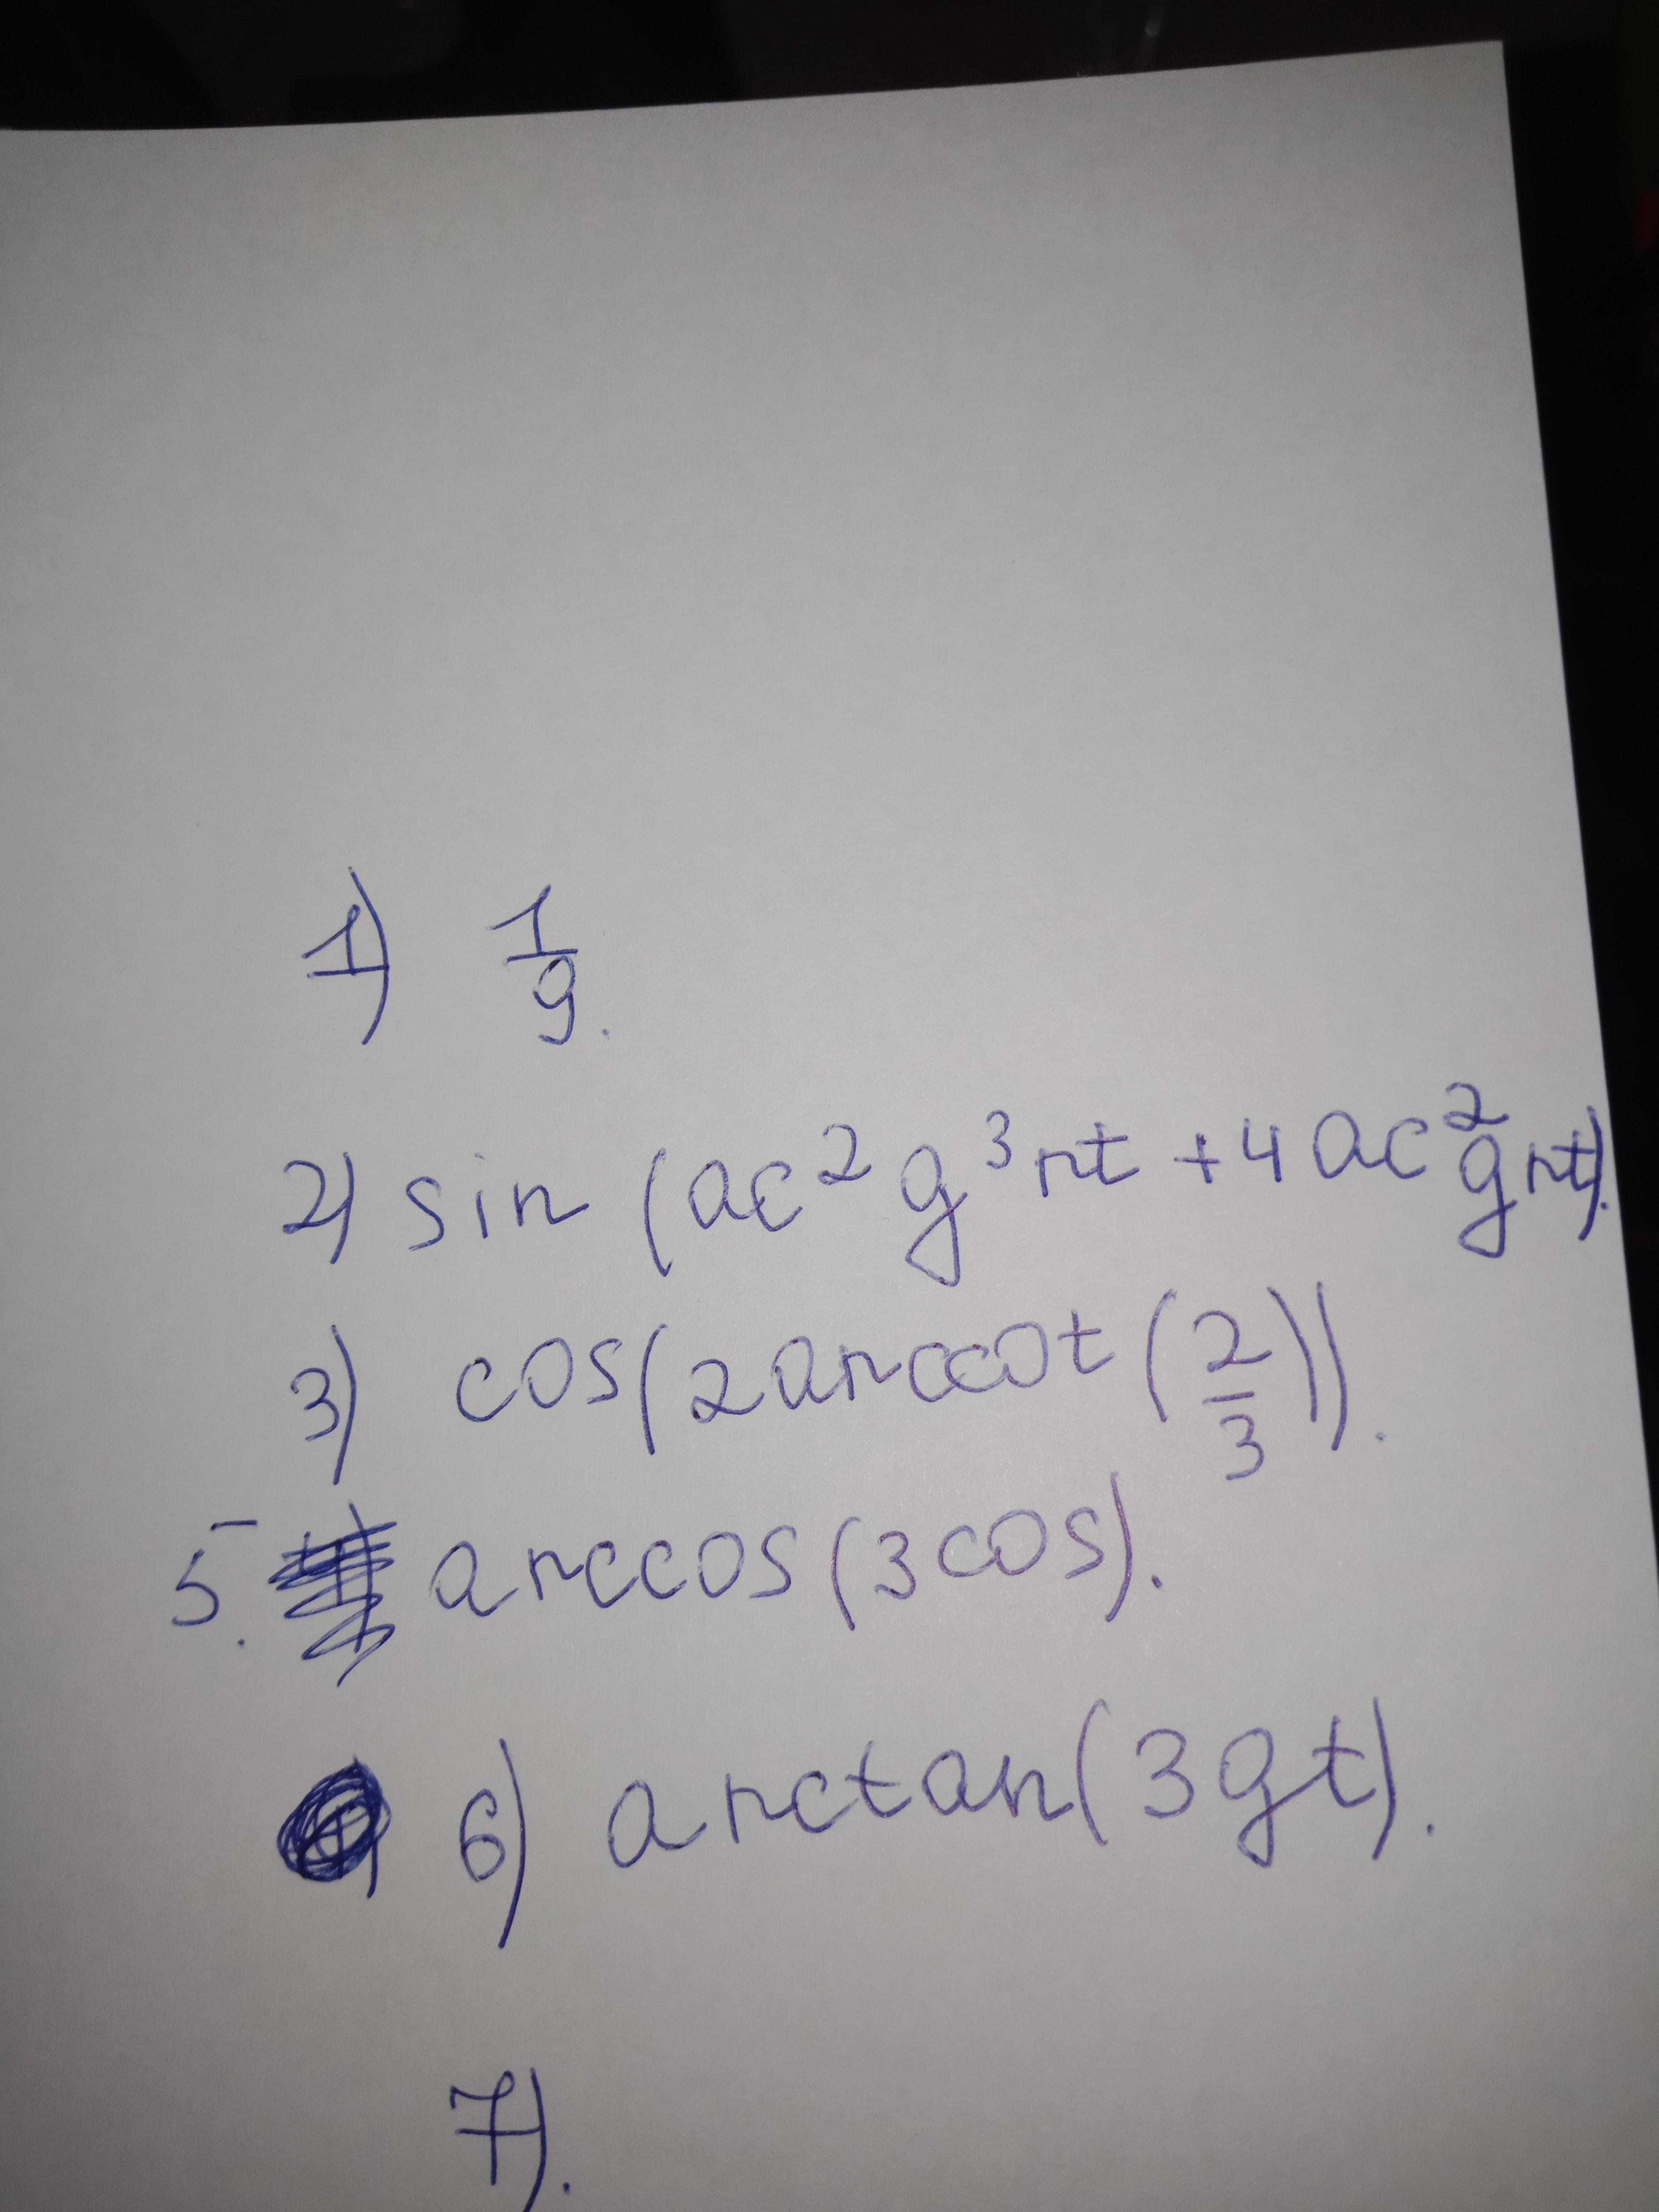 1) 1/9.
2) sin (ac²g³rt + 4ac²grt).
3) cos(2arccot(2/3)).
5. arccos(3cos).
6) arctan(3gt).
7).